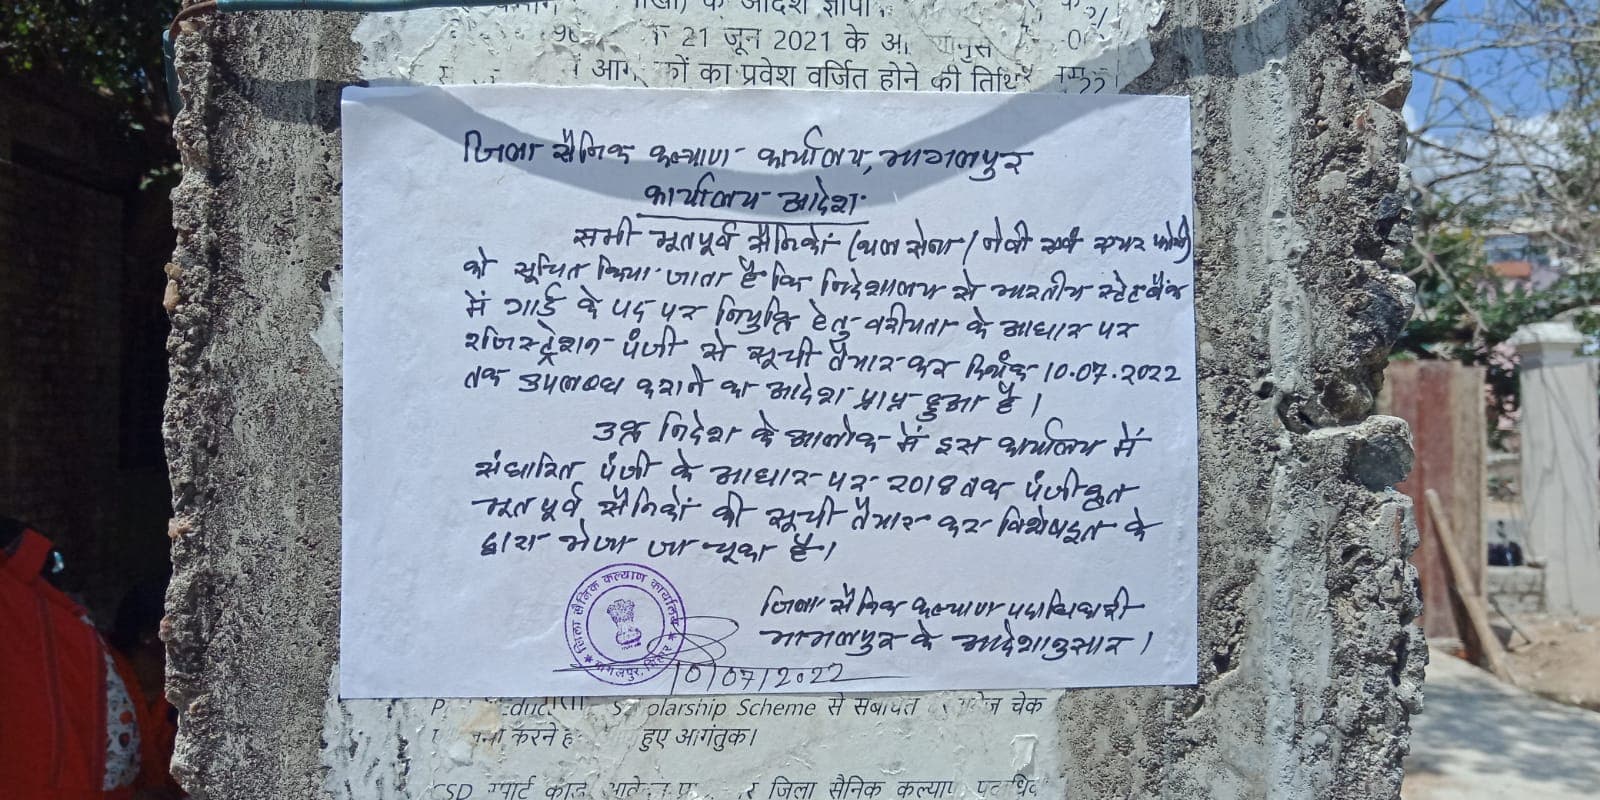 के आदेश ज्ञापां
21 जून 2021 के आ
का प्रवेश वर्जित होने की तिथि
जिला सैनिक कल्याण कार्यालय, भागलपुर
कार्यालय आदेश
सभी भूतपूर्व सैनिकों (थल सेना / नेवी एवं एयर फोर्स)
को सूचित किया जाता है कि निदेशालय से भारतीय स्टेट बैंक
में गार्ड के पद पर नियुक्ति हेतु वरीयता के आधार पर
रजिस्ट्रेशन पंजी से सूची तैयार कर दिनांक 10.07.2022
तक उपलब्ध कराने का आदेश प्राप्त हुआ है।
उक्त निदेश के आलोक में इस कार्यालय में
संधारित पंजी के आधार पर 2018 तक पंजीकृत
भूतपूर्व सैनिकों की सूची तैयार कर विशेषदूत के
द्वारा भेजा जा चूका है।
जिला सैनिक कल्याण पदाधिकारी
भागलपुर के आदेशानुसार।
जिला सैनिक कल्याण कार्यालय
भागलपुर, बिहार
10/07/2022
Scholarship Scheme से सबंधित चेक
करने हुए आगंतुक।
CSD स्मार्ट कार्ड जिला सैनिक कल्याण